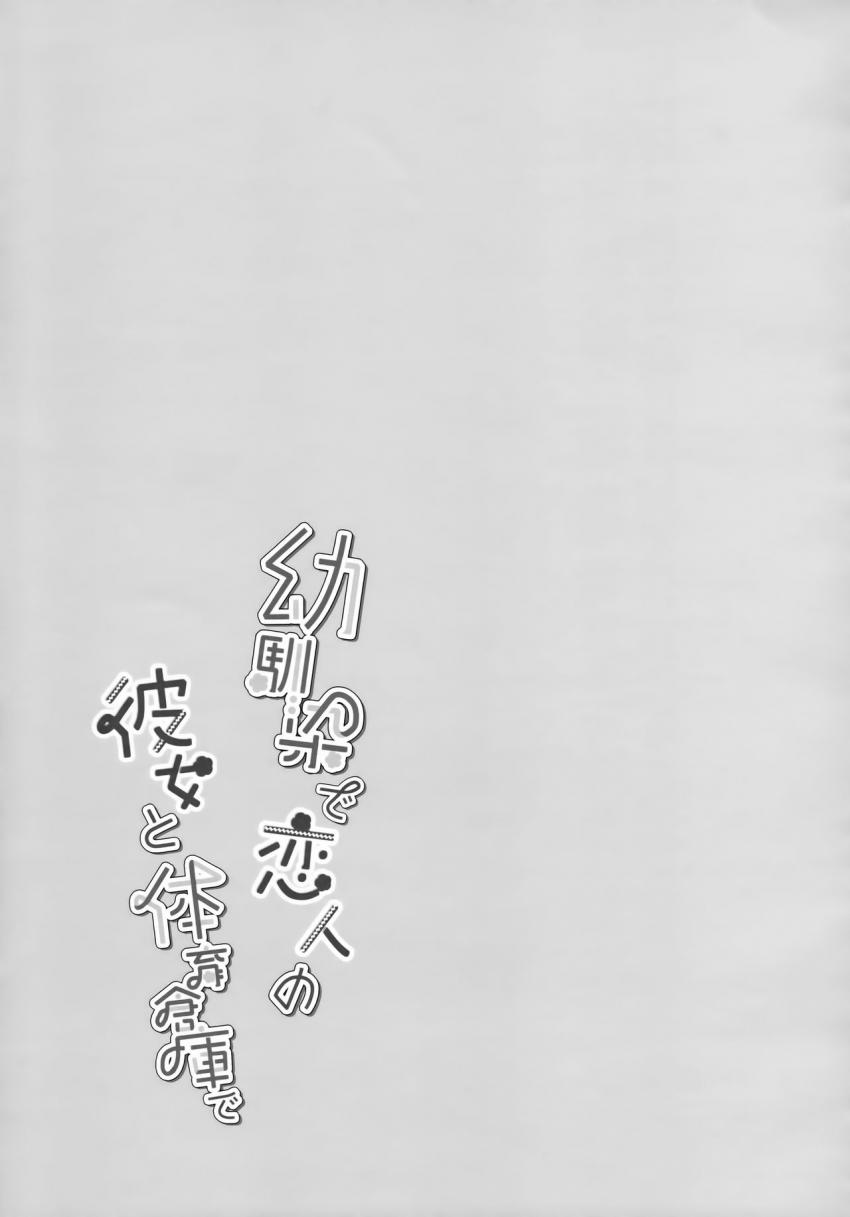 幼馴染で恋人の
彼女と体育倉庫で